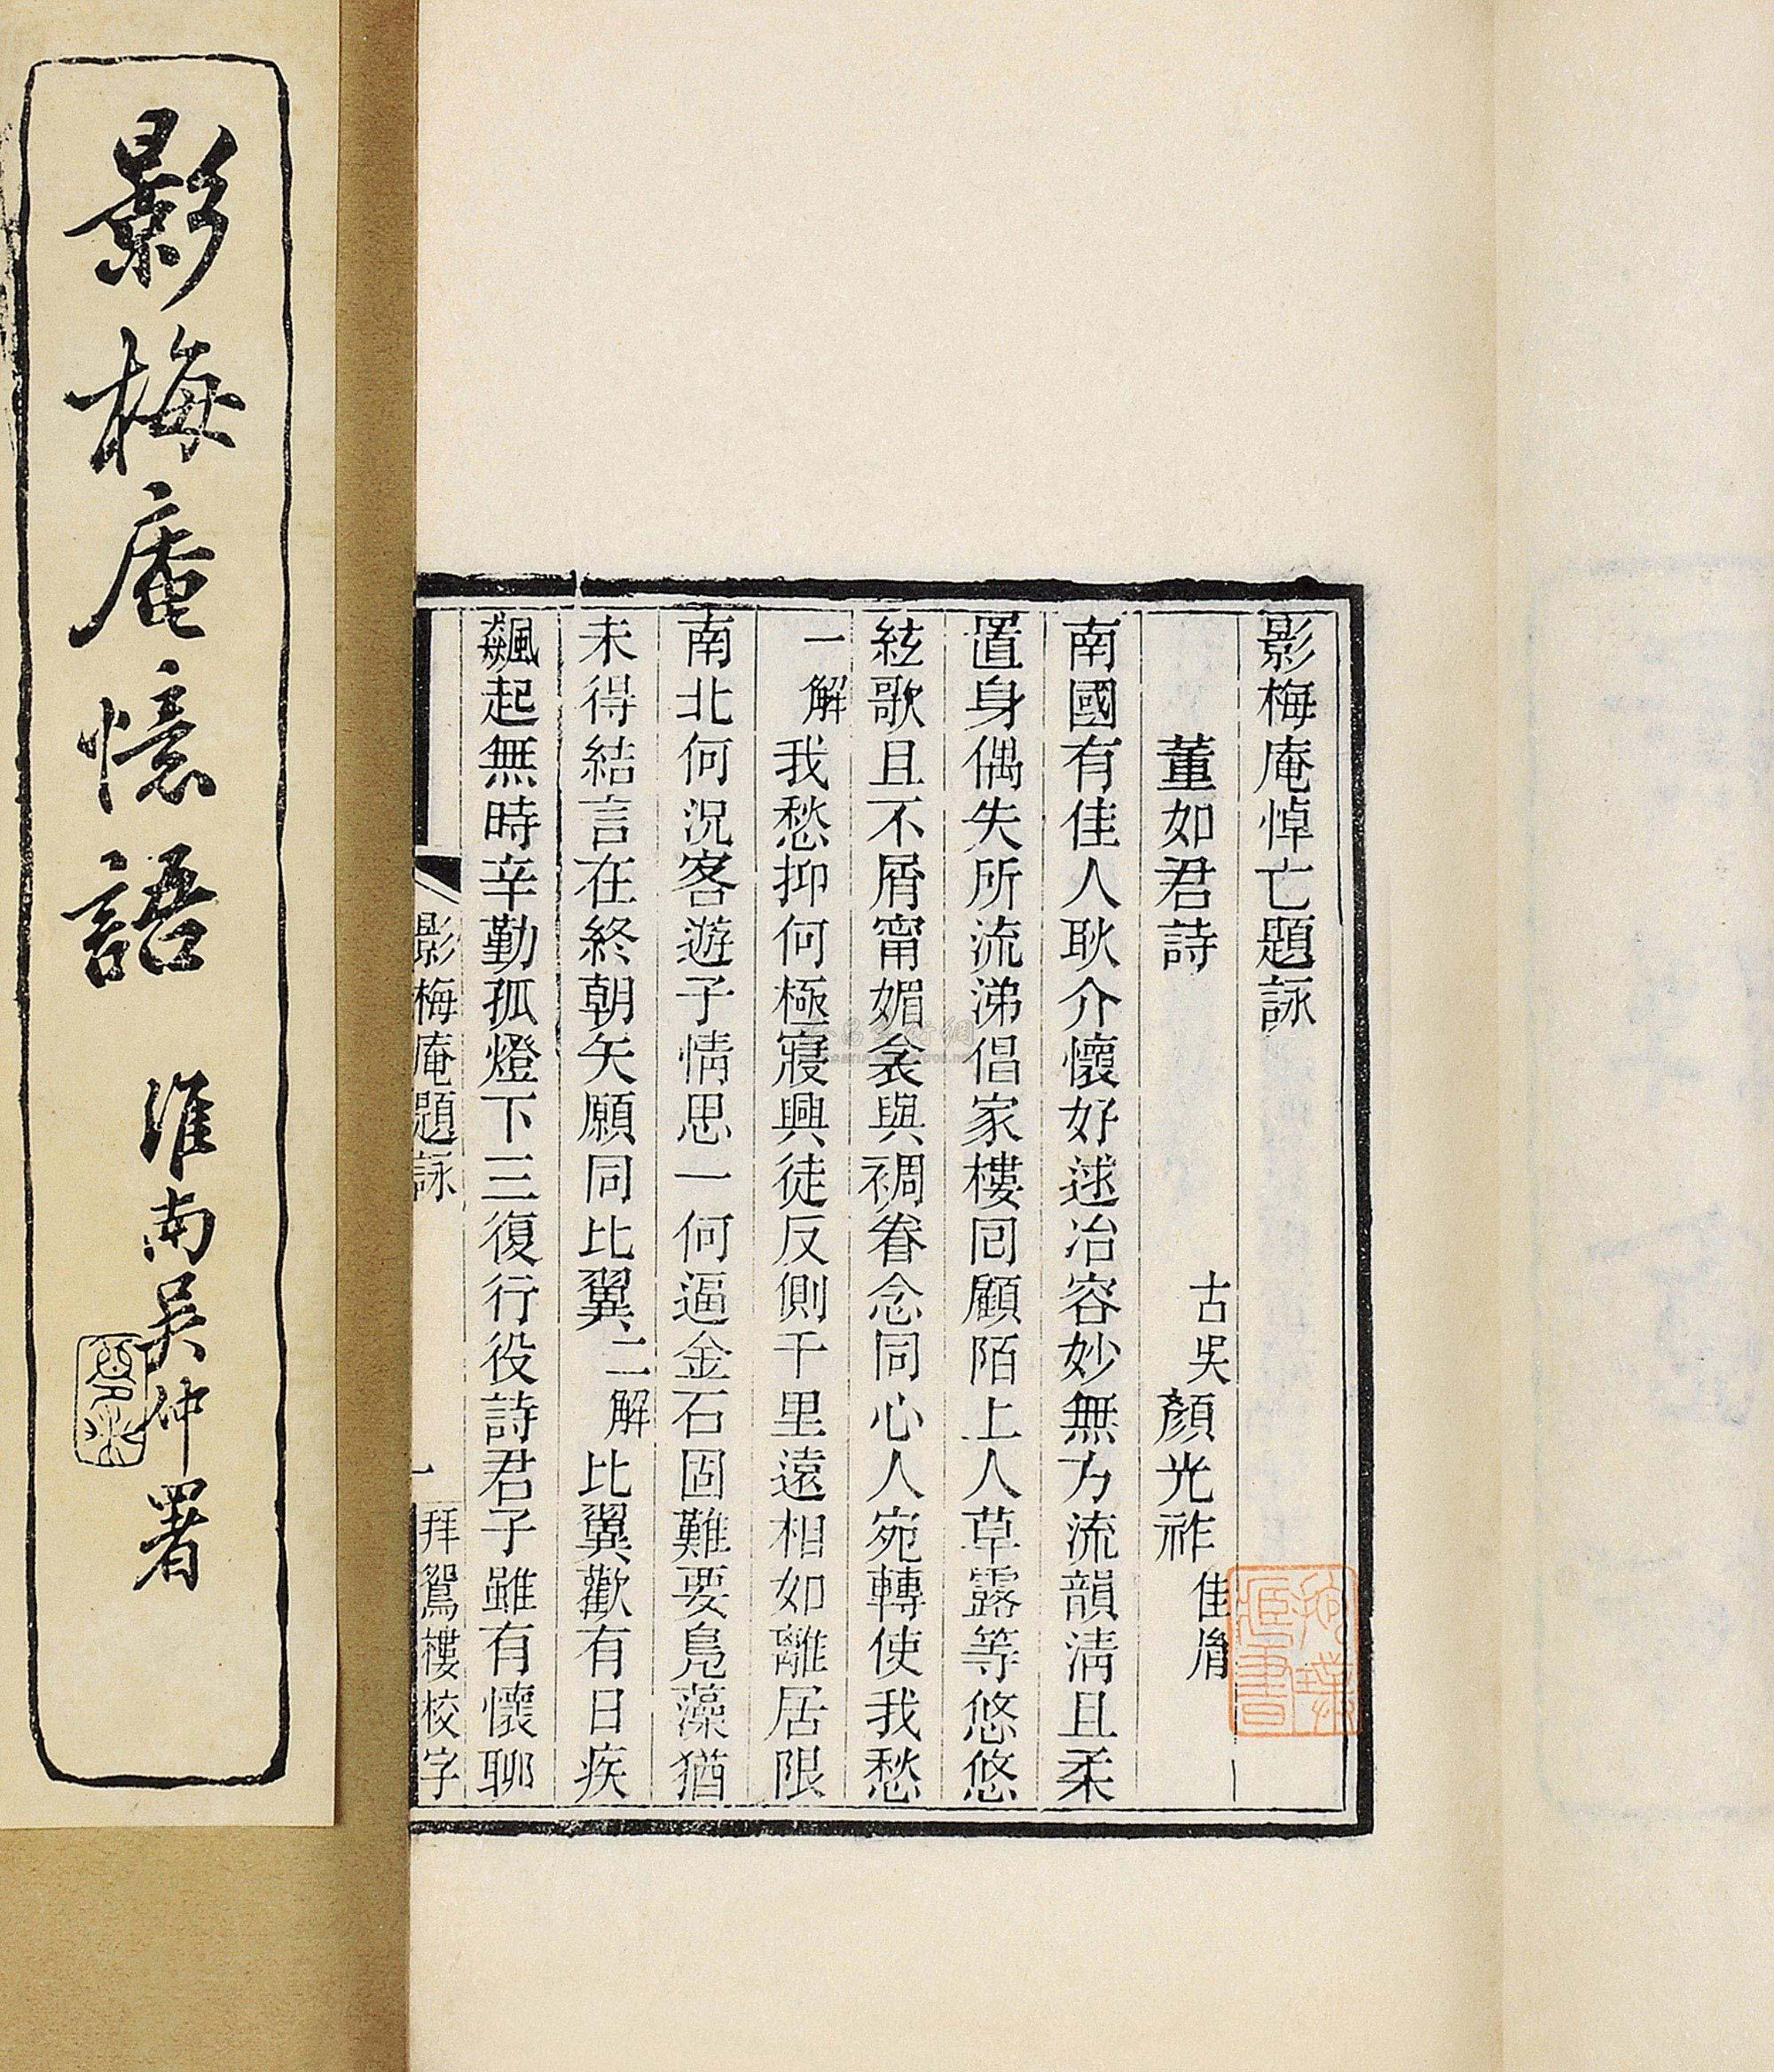 影梅庵悼亡題詠
董如君詩
古吳顏光祚佳胤
南國有佳人耿介懷好逑冶容妙無方流韻淸且柔
置身偶失所流涕倡家樓囘顧陌上人草露等悠悠
絃歌且不屑甯媚衾與裯眷念同心人宛轉使我愁
一解 我愁抑何極寢興徒反側千里遠相如離居限
南北何況客遊子情思一何逼金石固難要鳧藻猶
未得結言在終朝矢願同比翼二解 比翼歡有日疾
飆起無時辛勤孤燈下三復行役詩君子雖有懷聊
影梅庵題詠
一
拜鴛樓校字
影梅庵憶語
淮南吳仲署